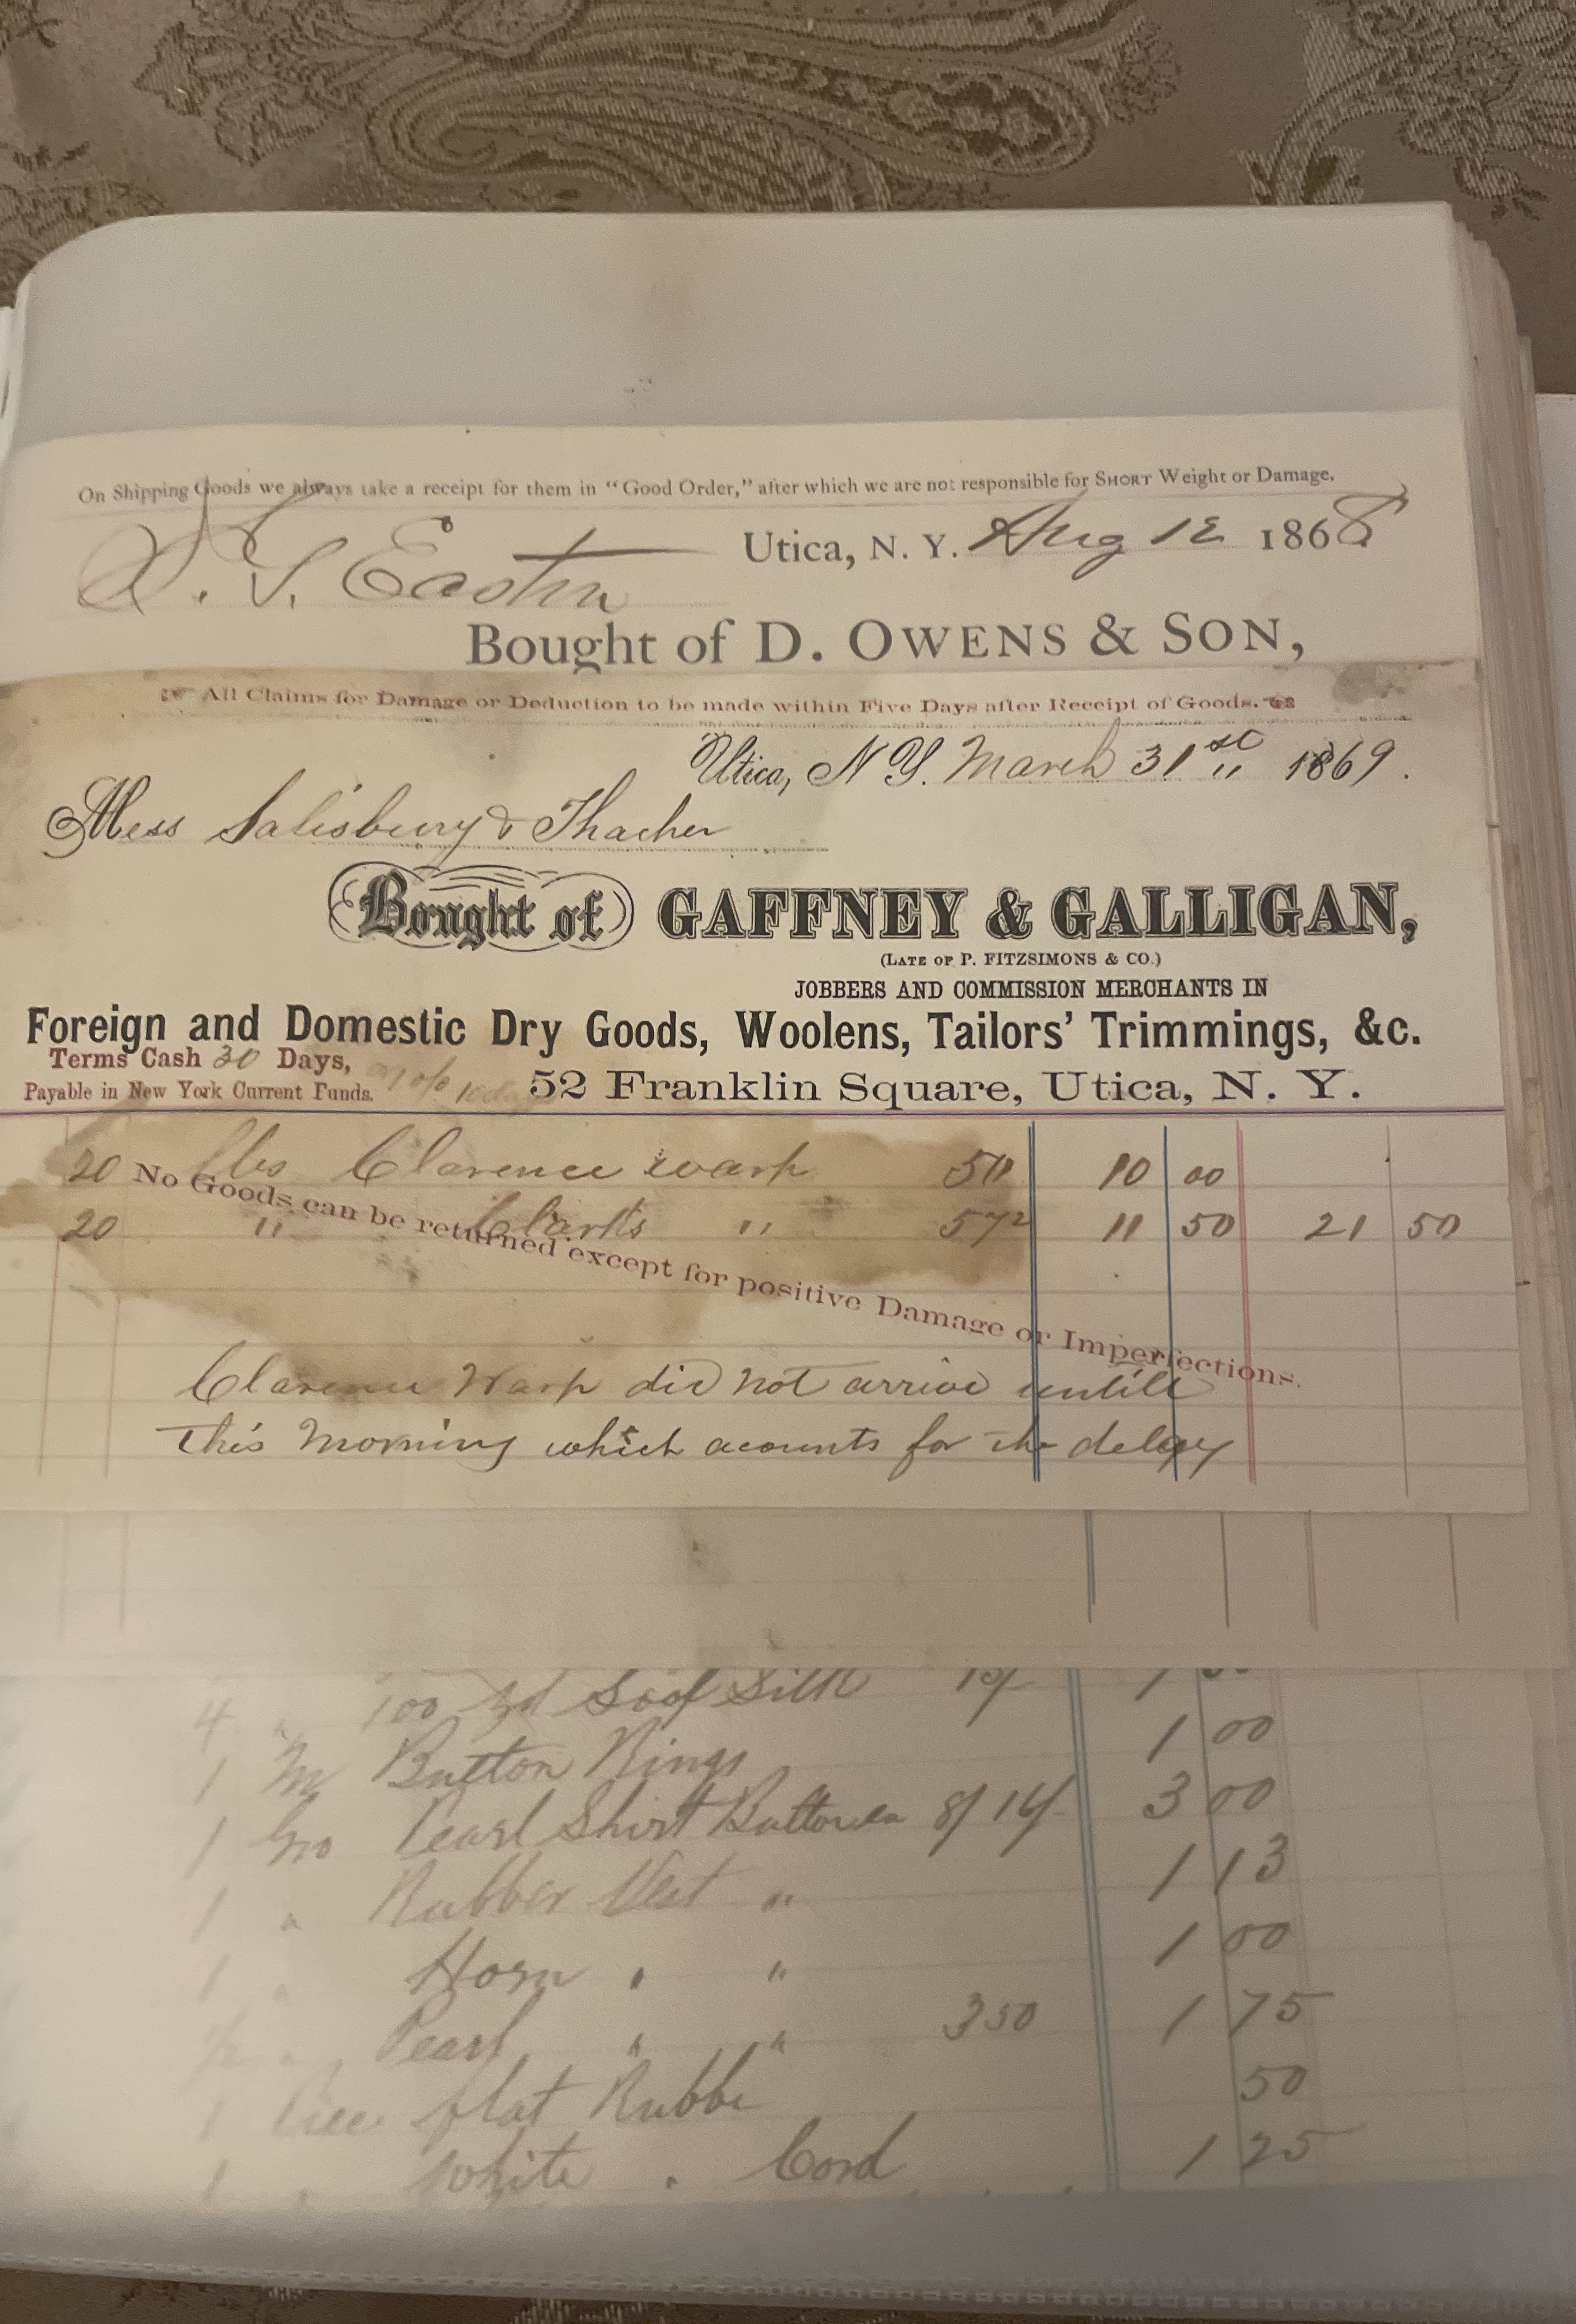 On Shipping Goods we always take a receipt for them in "Good Order," after which we are not responsible for SHORT Weight or Damage.
Utica, N. Y. Aug 12 1868
S. Easton
Bought of D. OWENS & SON,
All Claims for Damage or Deduction to be made within Five Days after Receipt of Goods.
Utica, N Y. March 31st 1869.
Mess Salisbury & Thacher
Bought of GAFFNEY & GALLIGAN,
(LATE OF P. FITZSIMONS & CO.)
JOBBERS AND COMMISSION MERCHANTS IN
Foreign and Domestic Dry Goods, Woolens, Tailors' Trimmings, &c.
Terms Cash 30 Days,
Payable in New York Current Funds.
52 Franklin Square, Utica, N. Y.
20 lbs Clarence warp 50 10 00
No Goods can be returned except for positive Damage or Imperfections.
20 " Clark's " 57½ 11 50 21 50
Clarence Warp did not arrive untill
this Morning which acounts for the delay
4 " 100 yd Silk 1
1 M Button Rings 1 00
1 Gro Pearl Shirt Buttons 8/ 14/ 3 00
1 " Rubber Vest " 1 13
1 " Horn " " 1 00
Pearl " " 350 1 75
1 flat Rubbe 50
1 " White " Cord 1 25